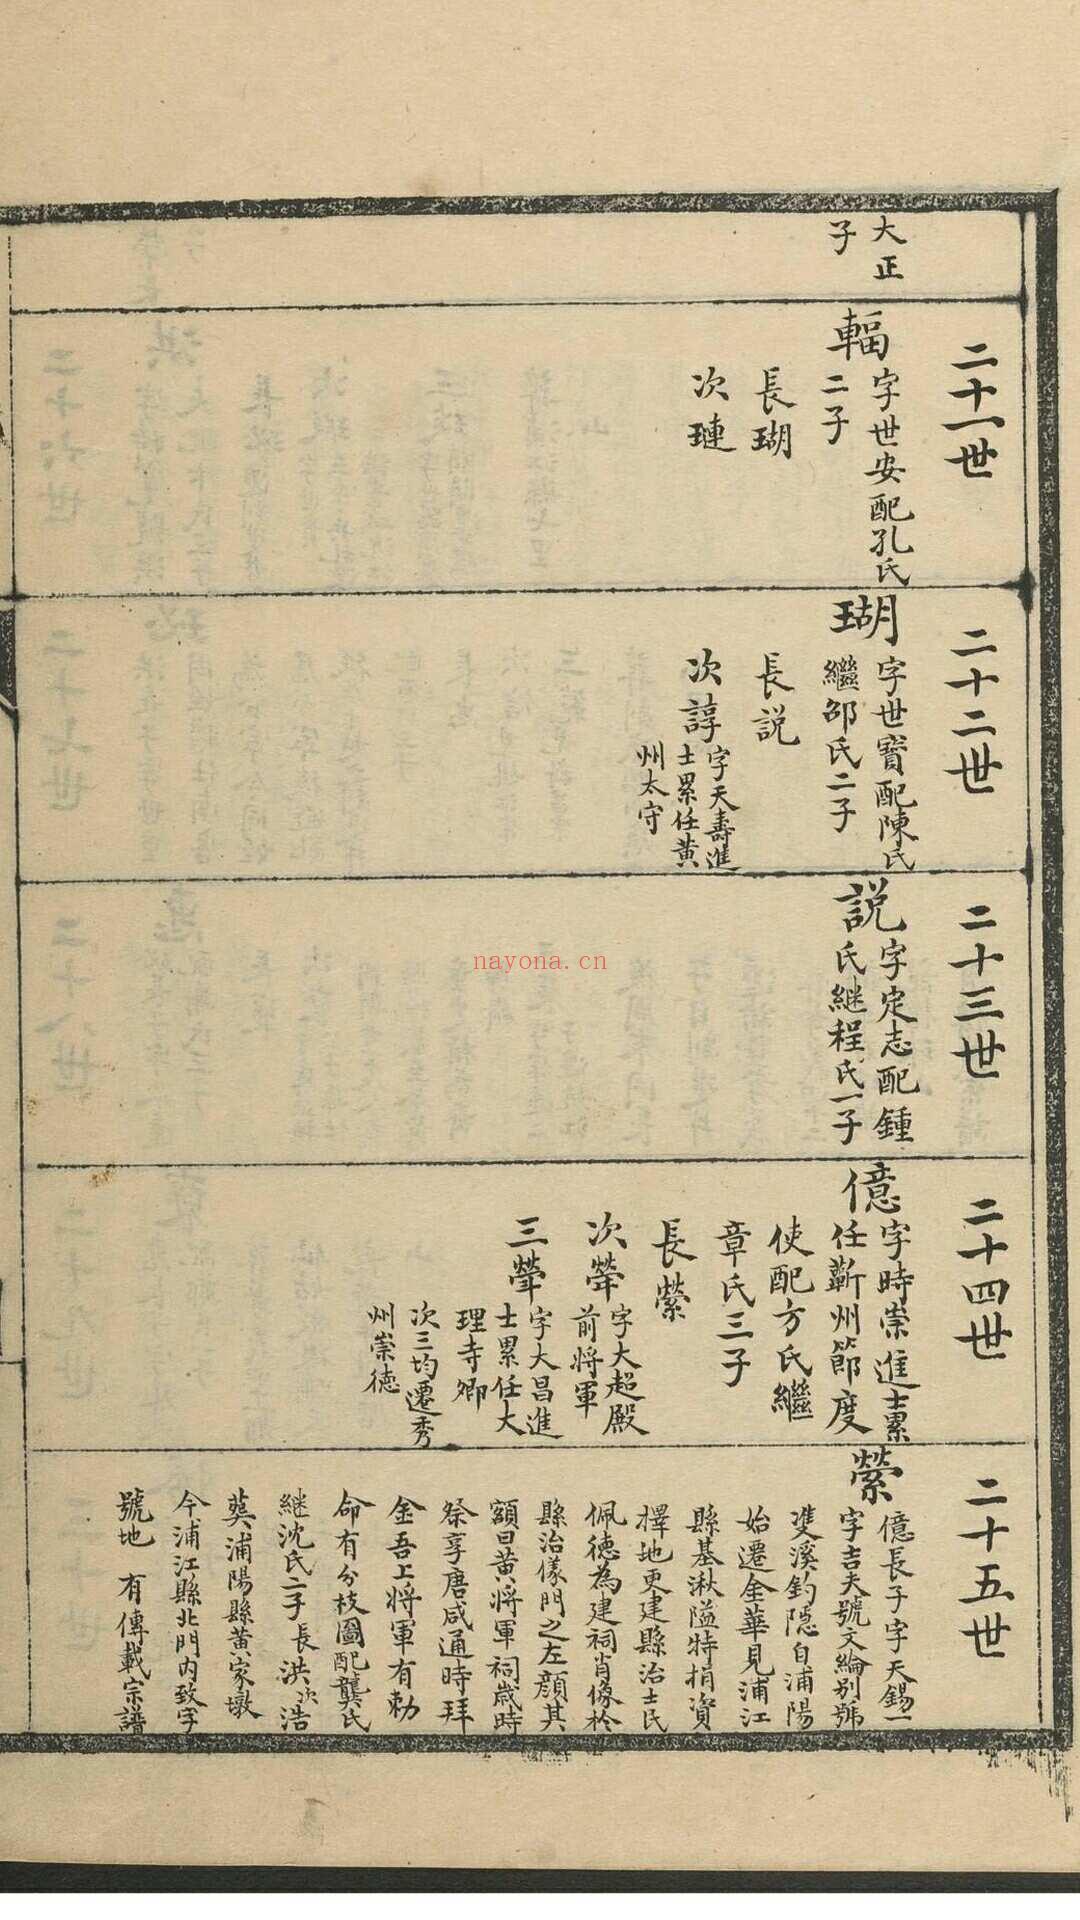 大正
子
二十一世
輻
字世安配孔氏
二子
長瑚
次璉
二十二世
瑚
字世寳配陳氏
繼邵氏二子
長説
次諄
字天壽進
士累任黄
州太守
二十三世
説
字定志配鍾
氏継程氏一子
nayona.cn
二十四世
億
字時崇進士累
任蘄州節度
使配方氏繼
章氏三子
長縈
次犖
字大超殿
前将軍
三犖
字大昌進
士累任大
理寺卿
次三均遷秀
州崇徳
二十五世
縈
億長子字天錫一
字吉夫號文綸别號
雙溪釣隠自浦陽
始遷金華見浦江
縣基湫隘特捐資
擇地更建縣治士民
佩徳為建祠肖像於
縣治儀門之左顔其
額曰黄將軍祠歳時
祭享唐咸通時拜
金吾上將軍有勅
命有分枝圖配龔氏
継沈氏二子長洪次浩
葬浦陽縣黄家墩
今浦江縣北門内致字
號地 有傳載宗譜